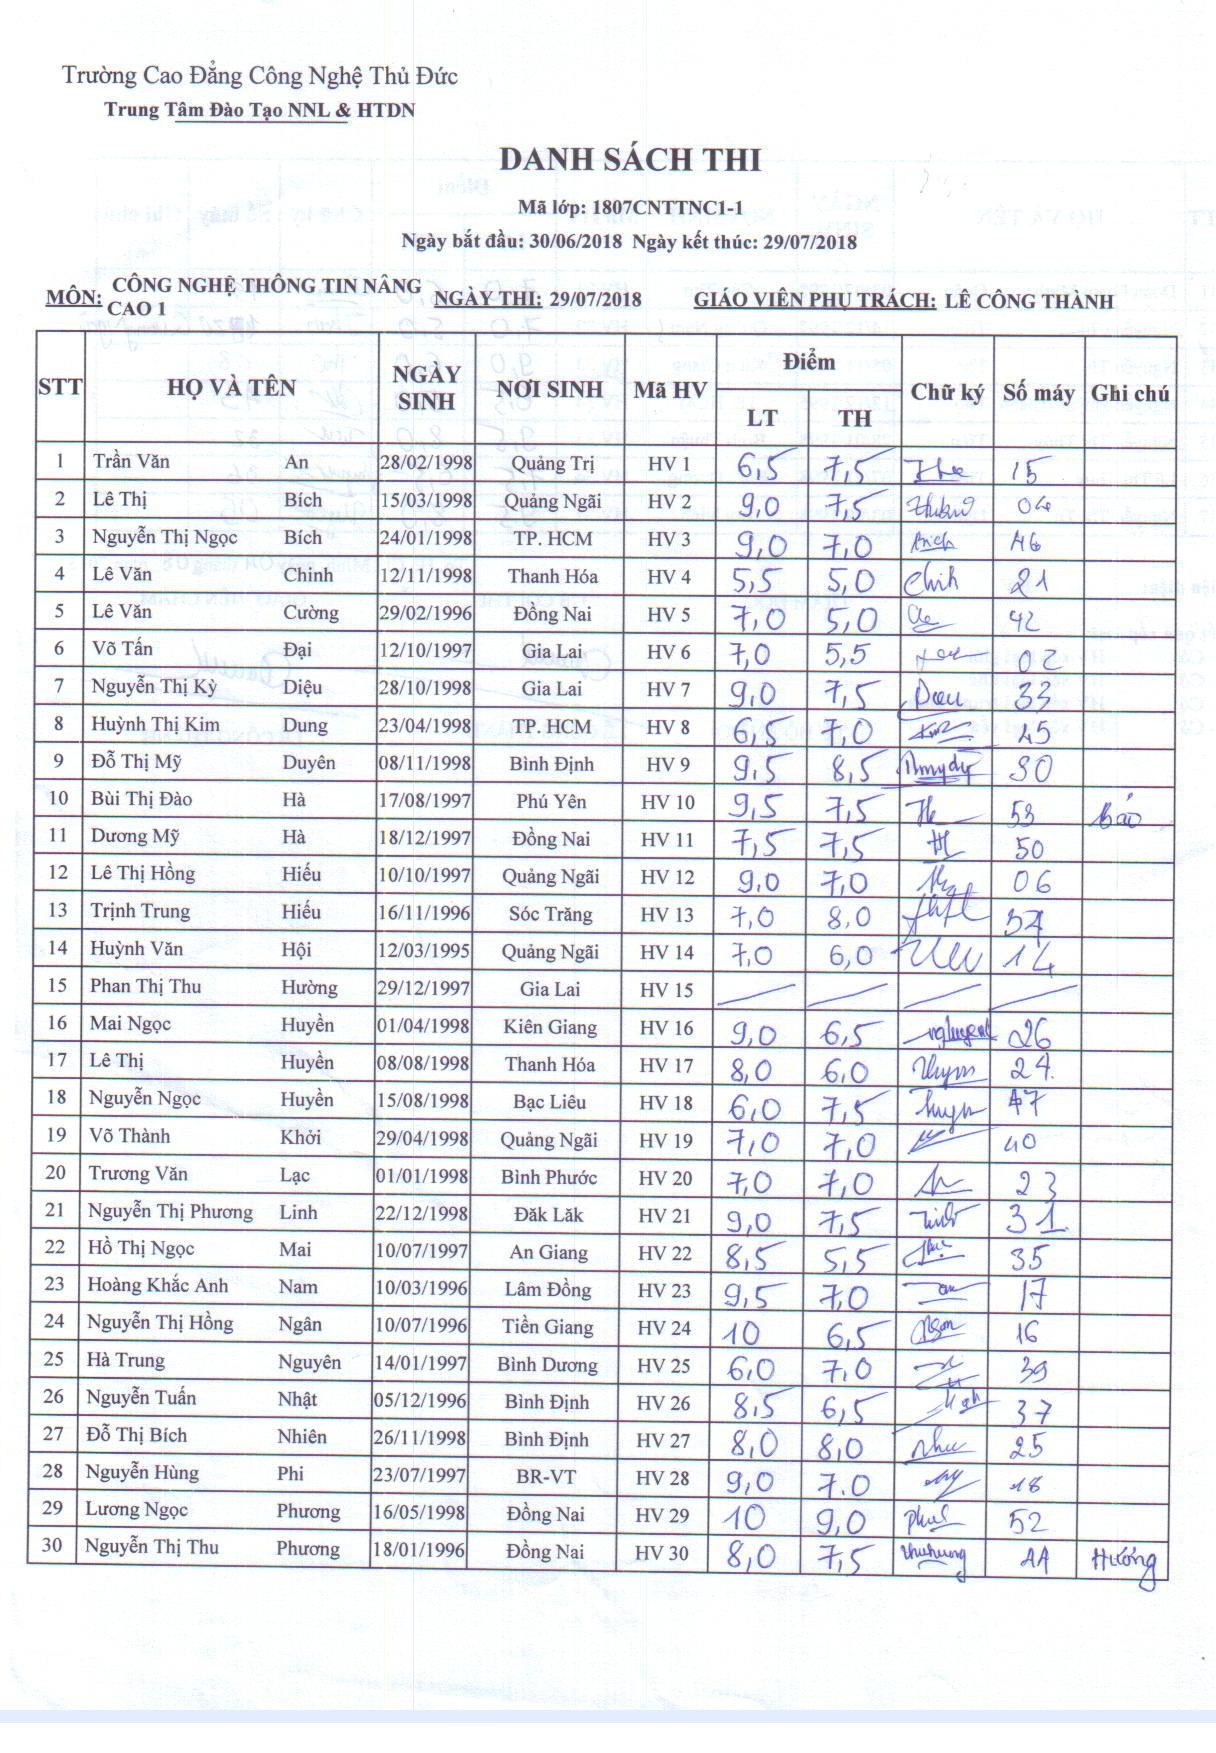 Trường Cao Đẳng Công Nghệ Thủ Đức
Trung Tâm Đào Tạo NNL & HTDN
DANH SÁCH THI
Mã lớp: 1807CNTTNC1-1
Ngày bắt đầu: 30/06/2018 Ngày kết thúc: 29/07/2018
MÔN: CÔNG NGHỆ THÔNG TIN NÂNG CAO 1 NGÀY THI: 29/07/2018 GIÁO VIÊN PHỤ TRÁCH: LÊ CÔNG THÀNH
STT HỌ VÀ TÊN NGÀY SINH NƠI SINH Mã HV Điểm Chữ ký Số máy Ghi chú
LT TH
1 Trần Văn An 28/02/1998 Quảng Trị HV 1 6,5 7,5 15
2 Lê Thị Bích 15/03/1998 Quảng Ngãi HV 2 9,0 7,5
3 Nguyễn Thị Ngọc Bích 24/01/1998 TP. HCM HV 3 9,0 7,0 Bích 46
4 Lê Văn Chinh 12/11/1998 Thanh Hóa HV 4 5,5 5,0 Chinh 21
5 Lê Văn Cường 29/02/1996 Đồng Nai HV 5 7,0 5,0 42
6 Võ Tấn Đại 12/10/1997 Gia Lai HV 6 7,0 5,5 02
7 Nguyễn Thị Kỳ Diệu 28/10/1998 Gia Lai HV 7 9,0 7,5 33
8 Huỳnh Thị Kim Dung 23/04/1998 TP. HCM HV 8 6,5 7,0 45
9 Đỗ Thị Mỹ Duyên 08/11/1998 Bình Định HV 9 9,5 8,5 30
10 Bùi Thị Đào Hà 17/08/1997 Phú Yên HV 10 9,5 7,5 53 Báo
11 Dương Mỹ Hà 18/12/1997 Đồng Nai HV 11 7,5 7,5 50
12 Lê Thị Hồng Hiếu 10/10/1997 Quảng Ngãi HV 12 9,0 7,0 06
13 Trịnh Trung Hiếu 16/11/1996 Sóc Trăng HV 13 7,0 8,0
14 Huỳnh Văn Hội 12/03/1995 Quảng Ngãi HV 14 7,0 6,0 14
15 Phan Thị Thu Hường 29/12/1997 Gia Lai HV 15
16 Mai Ngọc Huyền 01/04/1998 Kiên Giang HV 16 9,0 6,5 26
17 Lê Thị Huyền 08/08/1998 Thanh Hóa HV 17 8,0 6,0 24
18 Nguyễn Ngọc Huyền 15/08/1998 Bạc Liêu HV 18 6,0 7,5 47
19 Võ Thành Khởi 29/04/1998 Quảng Ngãi HV 19 7,0 7,0 40
20 Trương Văn Lạc 01/01/1998 Bình Phước HV 20 7,0 7,0 23
21 Nguyễn Thị Phương Linh 22/12/1998 Đăk Lăk HV 21 9,0 7,5 31
22 Hồ Thị Ngọc Mai 10/07/1997 An Giang HV 22 8,5 5,5 35
23 Hoàng Khắc Anh Nam 10/03/1996 Lâm Đồng HV 23 9,5 7,0 17
24 Nguyễn Thị Hồng Ngân 10/07/1996 Tiền Giang HV 24 10 6,5 16
25 Hà Trung Nguyên 14/01/1997 Bình Dương HV 25 6,0 7,0 39
26 Nguyễn Tuấn Nhật 05/12/1996 Bình Định HV 26 8,5 6,5 37
27 Đỗ Thị Bích Nhiên 26/11/1998 Bình Định HV 27 8,0 8,0 25
28 Nguyễn Hùng Phi 23/07/1997 BR-VT HV 28 9,0 7.0 18
29 Lương Ngọc Phương 16/05/1998 Đồng Nai HV 29 10 9,0 52
30 Nguyễn Thị Thu Phương 18/01/1996 Đồng Nai HV 30 8,0 7,5 Hướng